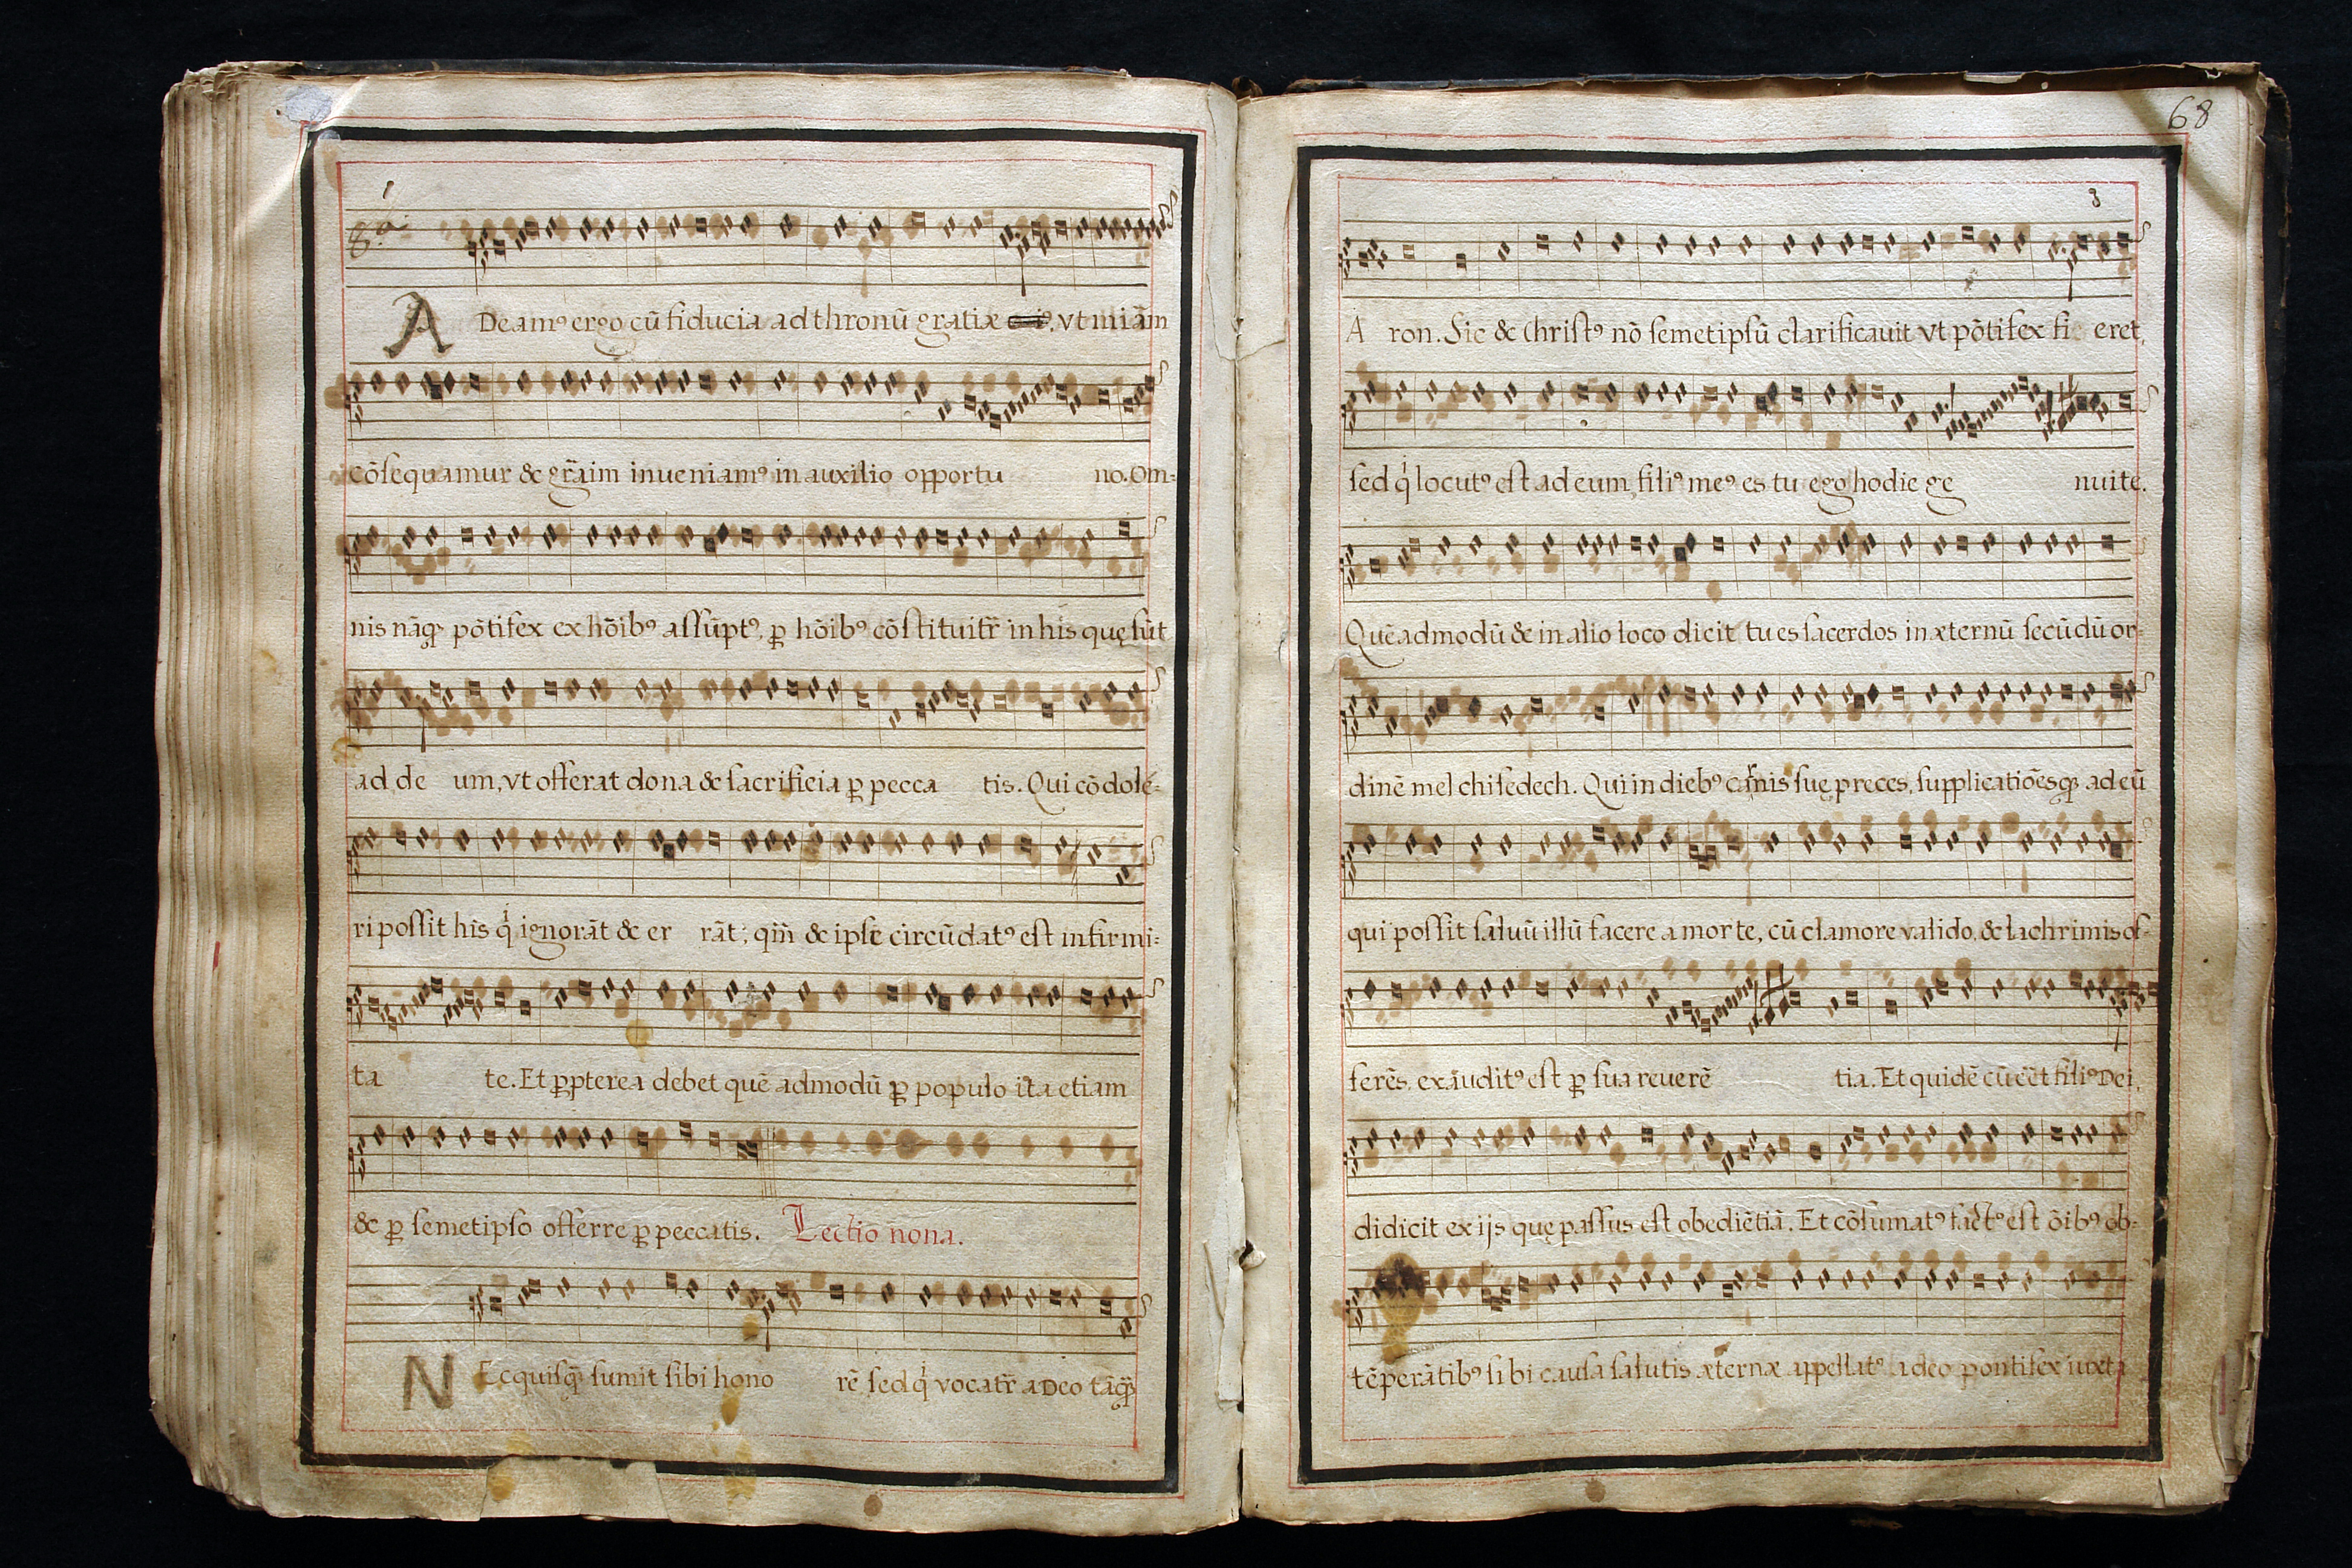 1
8.a
ADeamꝰ ergo cū fiducia ad thronū gratiæ , vt miãm
cōsequamur & grãim inueniamꝰ in auxilio opportu no. Om-
nis nāqȝ pōtifex ex hōibꝰ assūptꝰ, ꝓ hōibꝰ cōstituitr̃ in his quę sūt
ad de um, vt offerat dona & sacrificia ꝓ pecca tis. Qui cōdole-
ri possit his q̇ ignorāt & er rāt; qm̃ & ipse circūdatꝰ est infirmi-
ta te. Et ꝓpterea debet quē admodū ꝓ populo ita etiam
& ꝓ semetipso offerre ꝓ peccatis. Lectio nona.
NEcquisqȝ sumit sibi hono rē sed q̇ vocatr̃ a Deo tāqȝ
68
3
A ron. Sic & Christꝰ nō semetipsū clarificauit vt pōtifex fi eret,
sed q̇ locutꝰ est ad eum, filiꝰ meꝰ es tu ego hodie ge nuite.
Quēadmodū & in alio loco dicit tu es sacerdos in æternū secūdū or-
dinē melchisedech. Qui in diebꝰ carnis suę preces, supplicatiōesqȝ ad eū
qui possit saluū illū facere a morte, cū clamore valido, & lachrimis of-
ferēs, exauditꝰ est ꝓ sua reuerē tia. Et quidē cū eēt filiꝰ Dei,
didicit ex ijs quę passus est obediētiā. Et cōsumatꝰ factꝰ est ōibꝰ ob-
tēperātibꝰ sibi causa salutis æternæ appellatꝰ a deo pontifex iuxta